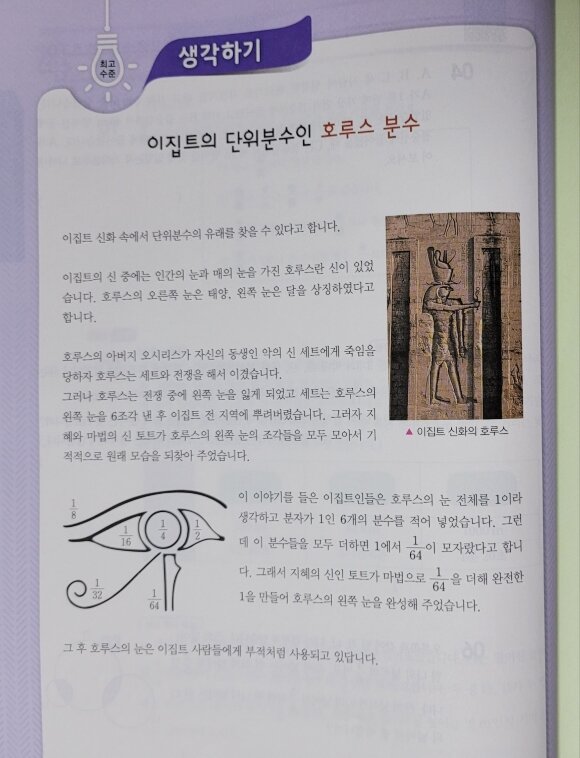 최고
수준
생각하기
이집트의 단위분수인 호루스 분수
이집트 신화 속에서 단위분수의 유래를 찾을 수 있다고 합니다.
이집트의 신 중에는 인간의 눈과 매의 눈을 가진 호루스란 신이 있었
습니다. 호루스의 오른쪽 눈은 태양, 왼쪽 눈은 달을 상징하였다고
합니다.
호루스의 아버지 오시리스가 자신의 동생인 악의 신 세트에게 죽임을
당하자 호루스는 세트와 전쟁을 해서 이겼습니다.
그러나 호루스는 전쟁 중에 왼쪽 눈을 잃게 되었고 세트는 호루스의
왼쪽 눈을 6조각 낸 후 이집트 전 지역에 뿌려버렸습니다. 그러자 지
혜와 마법의 신 토트가 호루스의 왼쪽 눈의 조각들을 모두 모아서 기
적적으로 원래 모습을 되찾아 주었습니다.
▲ 이집트 신화의 호루스
1/8
1/16
1/4
1/2
1/32
1/64
이 이야기를 들은 이집트인들은 호루스의 눈 전체를 1이라
생각하고 분자가 1인 6개의 분수를 적어 넣었습니다. 그런
데 이 분수들을 모두 더하면 1에서 1/64이 모자랐다고 합니
다. 그래서 지혜의 신인 토트가 마법으로 1/64을 더해 완전한
1을 만들어 호루스의 왼쪽 눈을 완성해 주었습니다.
그 후 호루스의 눈은 이집트 사람들에게 부적처럼 사용되고 있답니다.